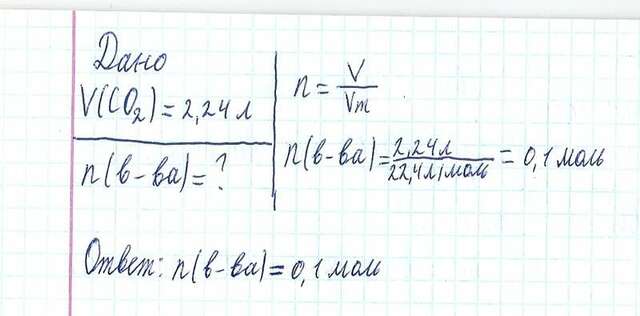 Дано
V(CO₂) = 2,24 л
n(в-ва) = ?
n = V/Vm
n(в-ва) = 2,24 л/22,4 л/моль = 0,1 моль
Ответ: n(в-ва) = 0,1 моль